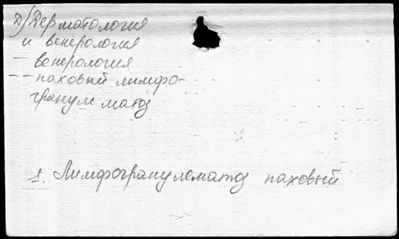 Д/Дерматология
и венерология
— венерология
-- паховый лимфо-
гранулематоз
1. Лимфогранулематоз паховый